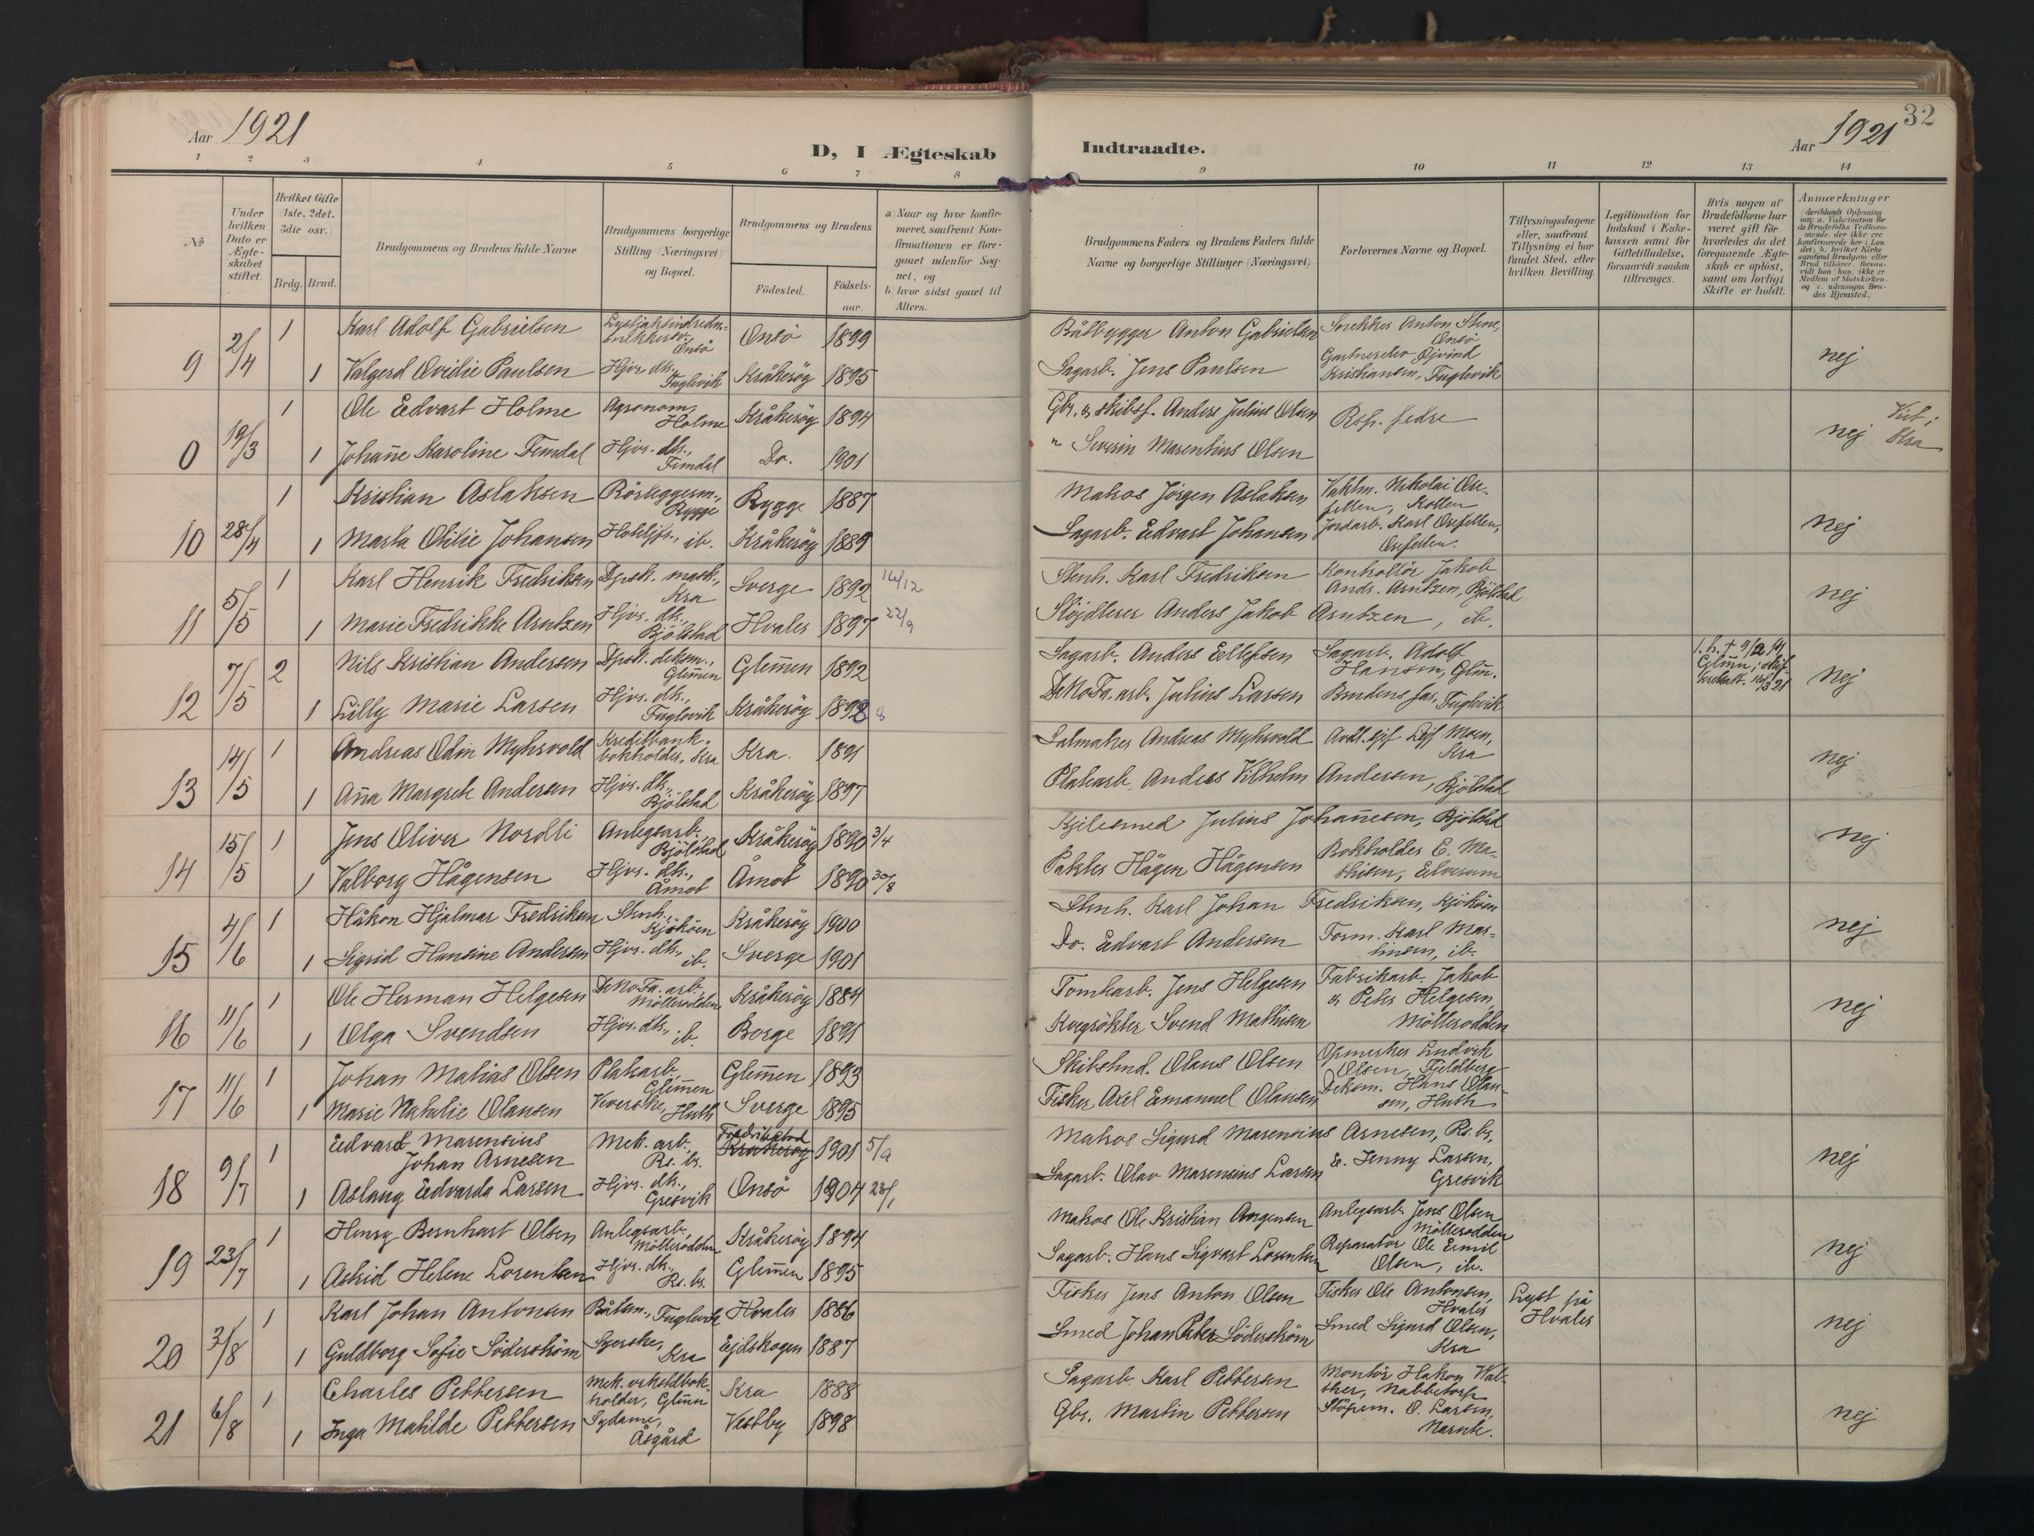 Aar 1921
D, I Ægteskab
Indtraadte.
Aar 1921
32
1 2 3 4 5 6 7 8 9 10 11 12 13 14
No
Under hvilken Dato er Ægteskabet stiftet.
Hvilket Gifte 1ste, 2det, 3die osv.
Brdg. Brud.
Brudgommens og Brudens fulde Navne.
Brudgommens borgerlige Stilling (Næringsvei) og Bopæl.
Brudgommens og Brudens
Fødested.
Fødselsaar.
a) Naar og hvor konfirmeret, saafremt Konfirmationen er foregaaet udenfor Sognet, og
b) hvor sidst gaaet til Alters.
Brudgommens Faders og Brudens Faders fulde Navne og borgerlige Stillinger (Næringsvei)
Forlovernes Navne og Bopæl.
Tillysningsdagene eller, saafremt Tillysning ei har fundet Sted, efter hvilken Bevilling.
Legitimation for Indskud i Enkekassen samt for Giftetilladelse, forsaavidt saadan tiltrænges.
Hvis nogen af Brudefolkene har været gift før hvorledes da det foregaaende Ægteskab er opløst, samt om lovligt Skifte er holdt.
Anmærkninger
9 2/4 1 Karl Adolf Gabrielsen Onsö 1899 Båtbygger Anton Gabrielsen Snekker Anton Stene, Onsö nej
1 Valgerd Ovidie Paulsen Hjvr. dtr., Fuglevik Kråkeröy 1895 Sagarb. Jens Paulsen Gartnerelev Øjvind Kristiansen, Fuglevik
0 19/3 1 Ole Edvart Holme Agronom, Holme Kråkeröy 1894 Gbr. & skibsf. Anders Julius Olsen Resp. fedre nej
1 Johanne Karoline Femdal Hjvr. dtr., Femdal Do. 1901 " Severin Marentius Olsen
10 28/4 1 Kristian Aslaksen Rörleggerm., Rygge Rygge 1887 Matros Jörgen Aslaksen Vaktm. Nikolai Orefellen, Kollen nej
1 Marta Otilie Johansen ib. Kråkeröy 1889 Sagarb. Edvart Johansen Jordarb. Karl Orefellen, Orefellen.
11 5/5 1 Karl Henrik Fredriksen Dpsk. mask., Kra Sverge 1892 16/12 Stenh. Karl Fredriksen Kontrollör Jakob Andr. Arntzen, Bjölstad nej
1 Marie Fredrikke Arntzen Hjvr. dtr., Bjölstad Hvaler 1897 22/9 Anders Jakob Arntzen, ib.
12 7/5 2 Nils Kristian Andersen Dpsk. deksm., Glemmen Glemmen 1892 Sagarb. Anders Ellefsen Sagarb. Adolf Hansen, Glm. nej
1 Lilly Marie Larsen Hjvr. dtr., Fuglevik Kråkeröy 1898 8 DeNoFa. arb. Julius Larsen Brudens far, Fuglevik
13 14/5 1 Andreas Odin Myhrvold Kreditbank-bokholder, Kra Kra. 1891 Salmaker Andreas Myhrvold Moen, Kra nej
1 Anna Margrete Andersen Hjvr. dtr., Bjölstad Kråkeröy 1897 Platearb. Anders Vilhelm Andersen, Bjölstad
14 15/5 1 Jens Oliver Nordli Anlegsarb., Bjölstad Kråkeröy 1890 3/4 Kjelesmed Julius Johannesen, Bjölstad nej
1 Valborg Hågensen Hjvr. dtr., Åmot Åmot 1890 30/8 Pakter Hågen Hågensen Bokholder E. Matisen, Elverum
15 4/6 1 Håkon Hjalmar Fredriksen Stenh., Kjököen Kråkeröy 1900 Stenh. Karl Johan Fredriksen, Kjököen nej
1 Sigrid Hansine Andersen Hjvr. dtr., ib. Sverge 1901 Do. Edvart Andersen Form. Karl Martinsen, ib.
16 11/6 1 Ole Herman Helgesen DeNoFa. arb., Möllerodden Kråkeröy 1884 Tomtarb. Jens Helgesen Fabrikarb. Jakob & Peter Helgesen, Möllerodden nej
1 Olga Svendsen Hjvr. dtr., ib. Borge 1891 Kvegrökter Svend Mathisen
17 11/6 1 Johan Matias Olsen Platearb., Glemmen Glemmen 1893 Skibstmd. Olaus Olsen Opmerker Ludvik Olsen, Fjeldberg nej
1 Marie Natalie Olausen Veverske, Huth Sverge 1895 Fisker Axel Emanuel Olausen Deksm. Hans Olausen, Huth
18 9/7 1 Edvard Marensius Johan Arnesen Mek. arb., Rs. br. Fredrikstad Kråkeröy 1901 5/9 Matros Sigurd Marensius Arnesen, Rs. br. nej
1 Aslaug Edvarda Larsen Hjvr. dtr., Gresvik Onsö 1904 23/1 Sagarb. Olav Marensius Larsen E. Jenny Larsen, Gresvik
19 23/7 1 Henry Bernhart Olsen Anlegsarb., Möllerodden Kråkeröy 1894 Matros Ole Kristian Anlegsarb. Jens Olsen Möllerodden nej
1 Astrid Helene Lorentzen Hjvr. dtr., Rs. br. Glemmen 1895 Sagarb. Hans Sigvart Lorentzen Reparatör Ole Emil Olsen, ib.
20 3/8 1 Karl Johan Antonsen Båtsm., Fuglevik Hvaler 1886 Fisker Jens Anton Olsen Fisker Ole Antonsen, Hvaler Lyst på Hvaler nej
1 Guldborg Sofie Söderström Kra Ejdskogen 1887 Smed Johan Peter Söderström Smed Sigurd Olsen, Kra
21 6/8 1 Charles Pettersen Glmn Kra 1888 Sagarb. Karl Pettersen Montör Håkon Walther, Nabbetorp nej
1 Inga Matilde Pettersen Sydame, Åsgård Vestby 1898 Gbr. Martin Pettersen O. Larsen,